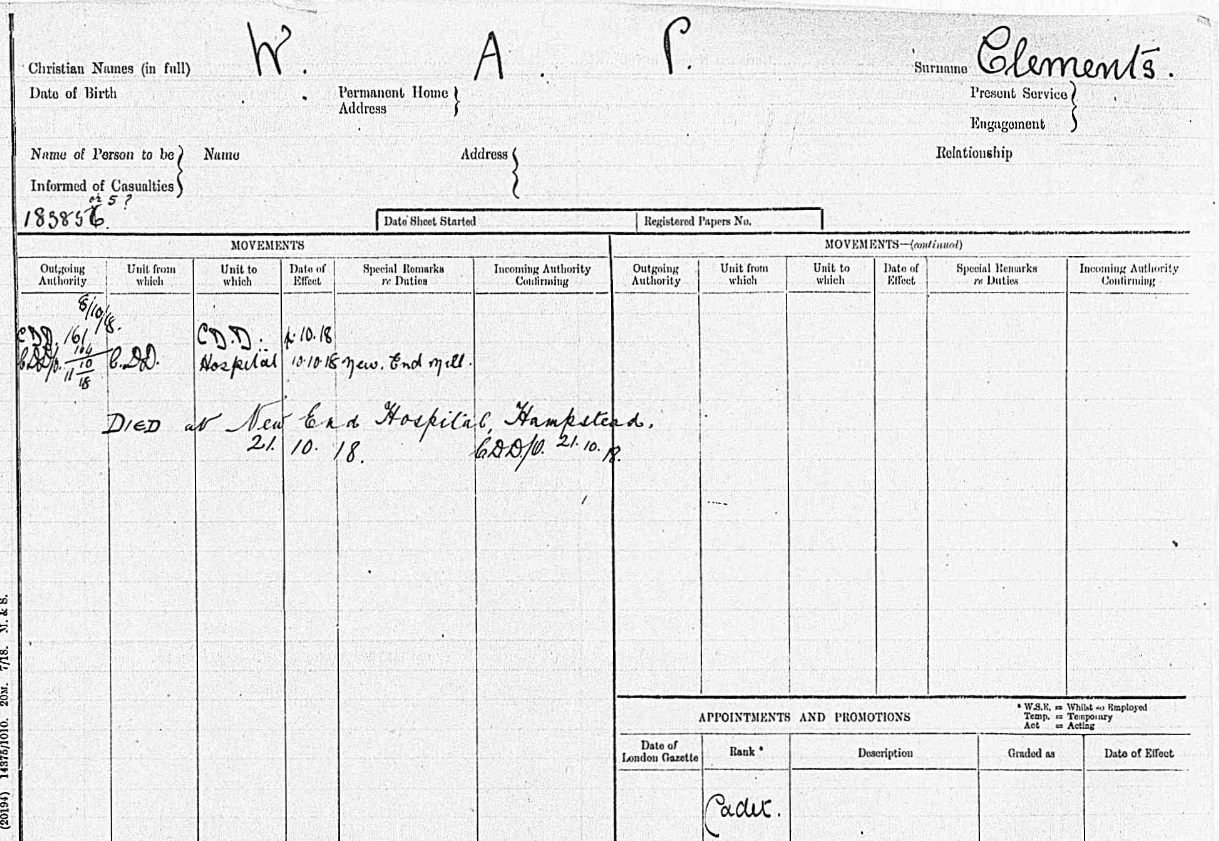 Christian Names (in full) W. A. P. Surname Clements.
Date of Birth Permanent Home Address Present Service Engagement
Name of Person to be Informed of Casualties Name Address Relationship
or 5 ?
183856.
Date Sheet Started Registered Papers No.
MOVEMENTS MOVEMENTS—(continued)
Outgoing Authority Unit from which Unit to which Date of Effect Special Remarks re Duties Incoming Authority Confirming Outgoing Authority Unit from which Unit to which Date of Effect Special Remarks re Duties Incoming Authority Confirming
8/10/18.
C.D.D. 10.18
C.D.D. Hospital 10.10.18 New. End
DIED at New End Hospital, Hampstead.
21. 10. 18. CDD/O. 21.10.18.
* W.S.E. = Whilst so Employed
Temp. = Temporary
Act = Acting
APPOINTMENTS AND PROMOTIONS
Date of London Gazette Rank * Description Graded as Date of Effect
Cadet.
(20194) 14375/1010. 20M. 7/18. M. & S.